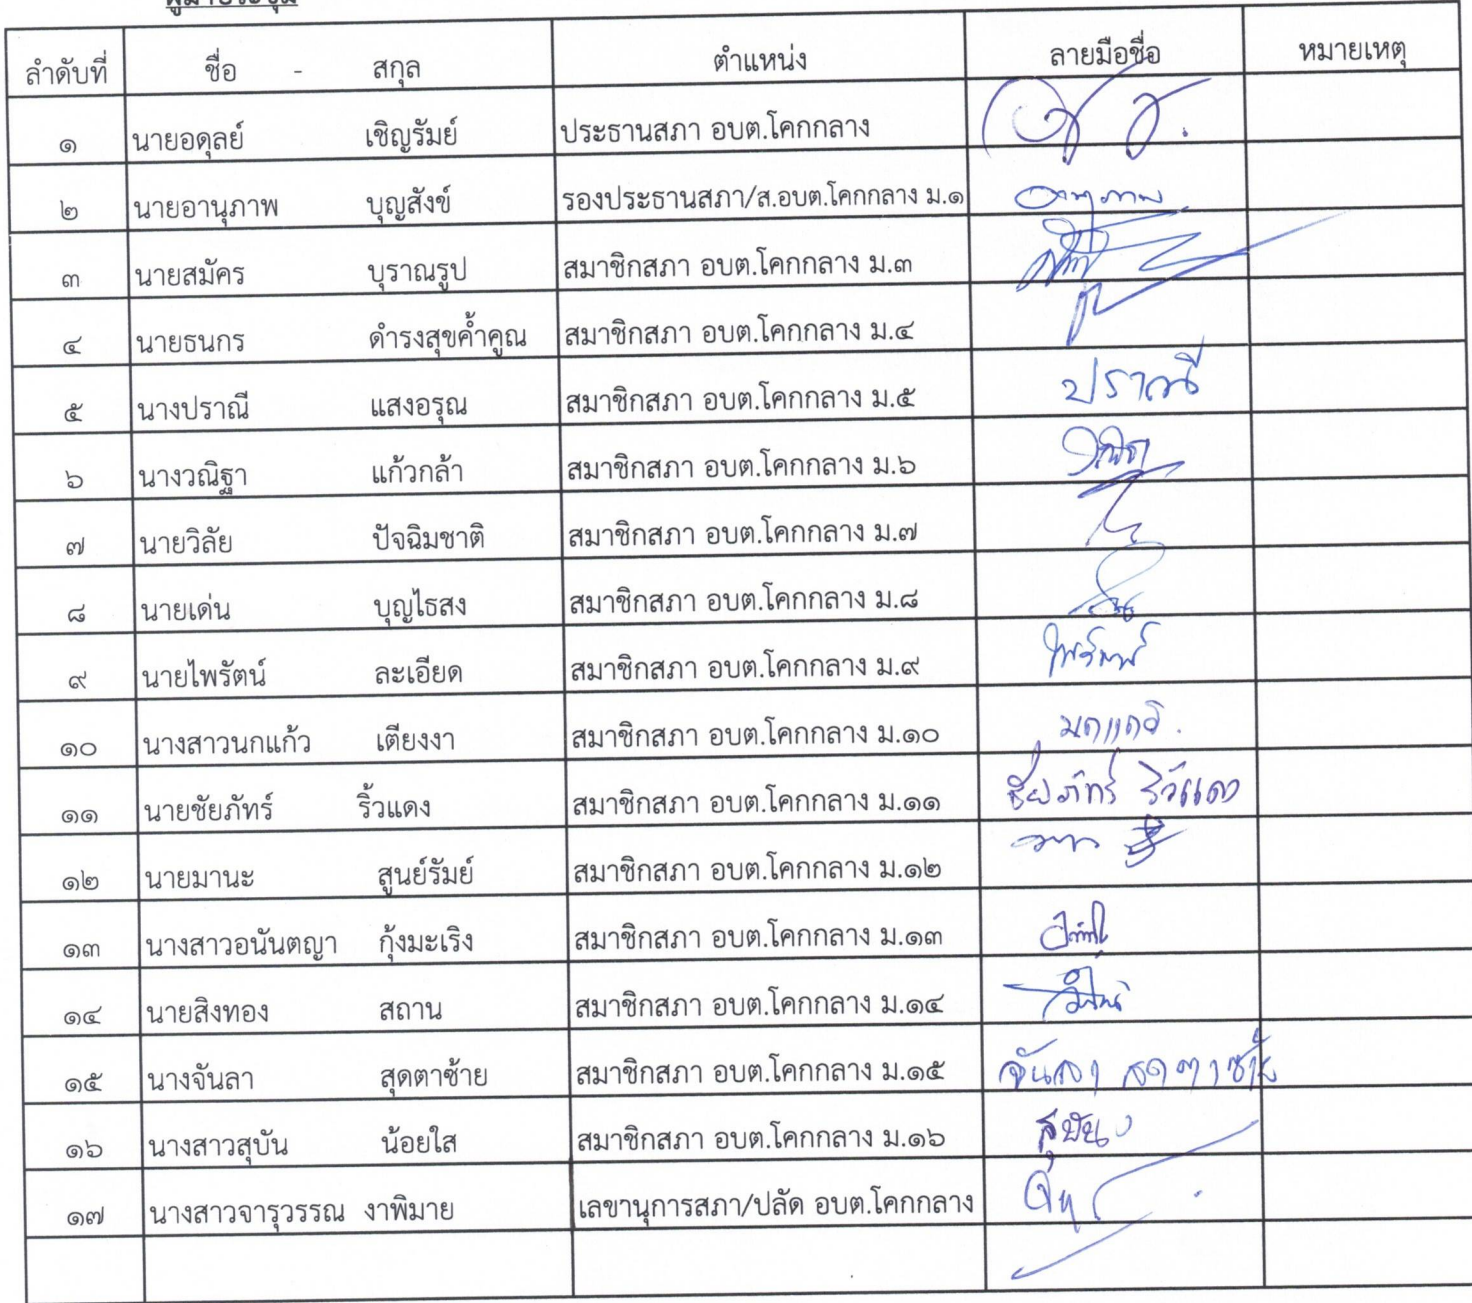 ผู้มาประชุม
ลำดับที่ ชื่อ - สกุล ตำแหน่ง ลายมือชื่อ หมายเหตุ
๑ นายอดุลย์ เชิญรัมย์ ประธานสภา อบต.โคกกลาง
๒ นายอานุภาพ บุญสังข์ รองประธานสภา/ส.อบต.โคกกลาง ม.๑ อานุภาพ
๓ นายสมัคร บุราณรูป สมาชิกสภา อบต.โคกกลาง ม.๓
๔ นายธนกร ดำรงสุขค้ำคูณ สมาชิกสภา อบต.โคกกลาง ม.๔
๕ นางปราณี แสงอรุณ สมาชิกสภา อบต.โคกกลาง ม.๕ ปราณี
๖ นางวณิฐา แก้วกล้า สมาชิกสภา อบต.โคกกลาง ม.๖
๗ นายวิลัย ปัจฉิมชาติ สมาชิกสภา อบต.โคกกลาง ม.๗
๘ นายเด่น บุญไธสง สมาชิกสภา อบต.โคกกลาง ม.๘
๙ นายไพรัตน์ ละเอียด สมาชิกสภา อบต.โคกกลาง ม.๙ ไพรัตน์
๑๐ นางสาวนกแก้ว เตียงงา สมาชิกสภา อบต.โคกกลาง ม.๑๐ นกแก้ว
๑๑ นายชัยภัทร์ ริ้วแดง สมาชิกสภา อบต.โคกกลาง ม.๑๑ ชัยภัทร์ ริ้วแดง
๑๒ นายมานะ สูนย์รัมย์ สมาชิกสภา อบต.โคกกลาง ม.๑๒
๑๓ นางสาวอนันตญา กุ้งมะเริง สมาชิกสภา อบต.โคกกลาง ม.๑๓
๑๔ นายสิงทอง สถาน สมาชิกสภา อบต.โคกกลาง ม.๑๔
๑๕ นางจันลา สุดตาซ้าย สมาชิกสภา อบต.โคกกลาง ม.๑๕ จันลา สุดตาซ้าย
๑๖ นางสาวสุบัน น้อยใส สมาชิกสภา อบต.โคกกลาง ม.๑๖ สุบัน
๑๗ นางสาวจารุวรรณ งาพิมาย เลขานุการสภา/ปลัด อบต.โคกกลาง